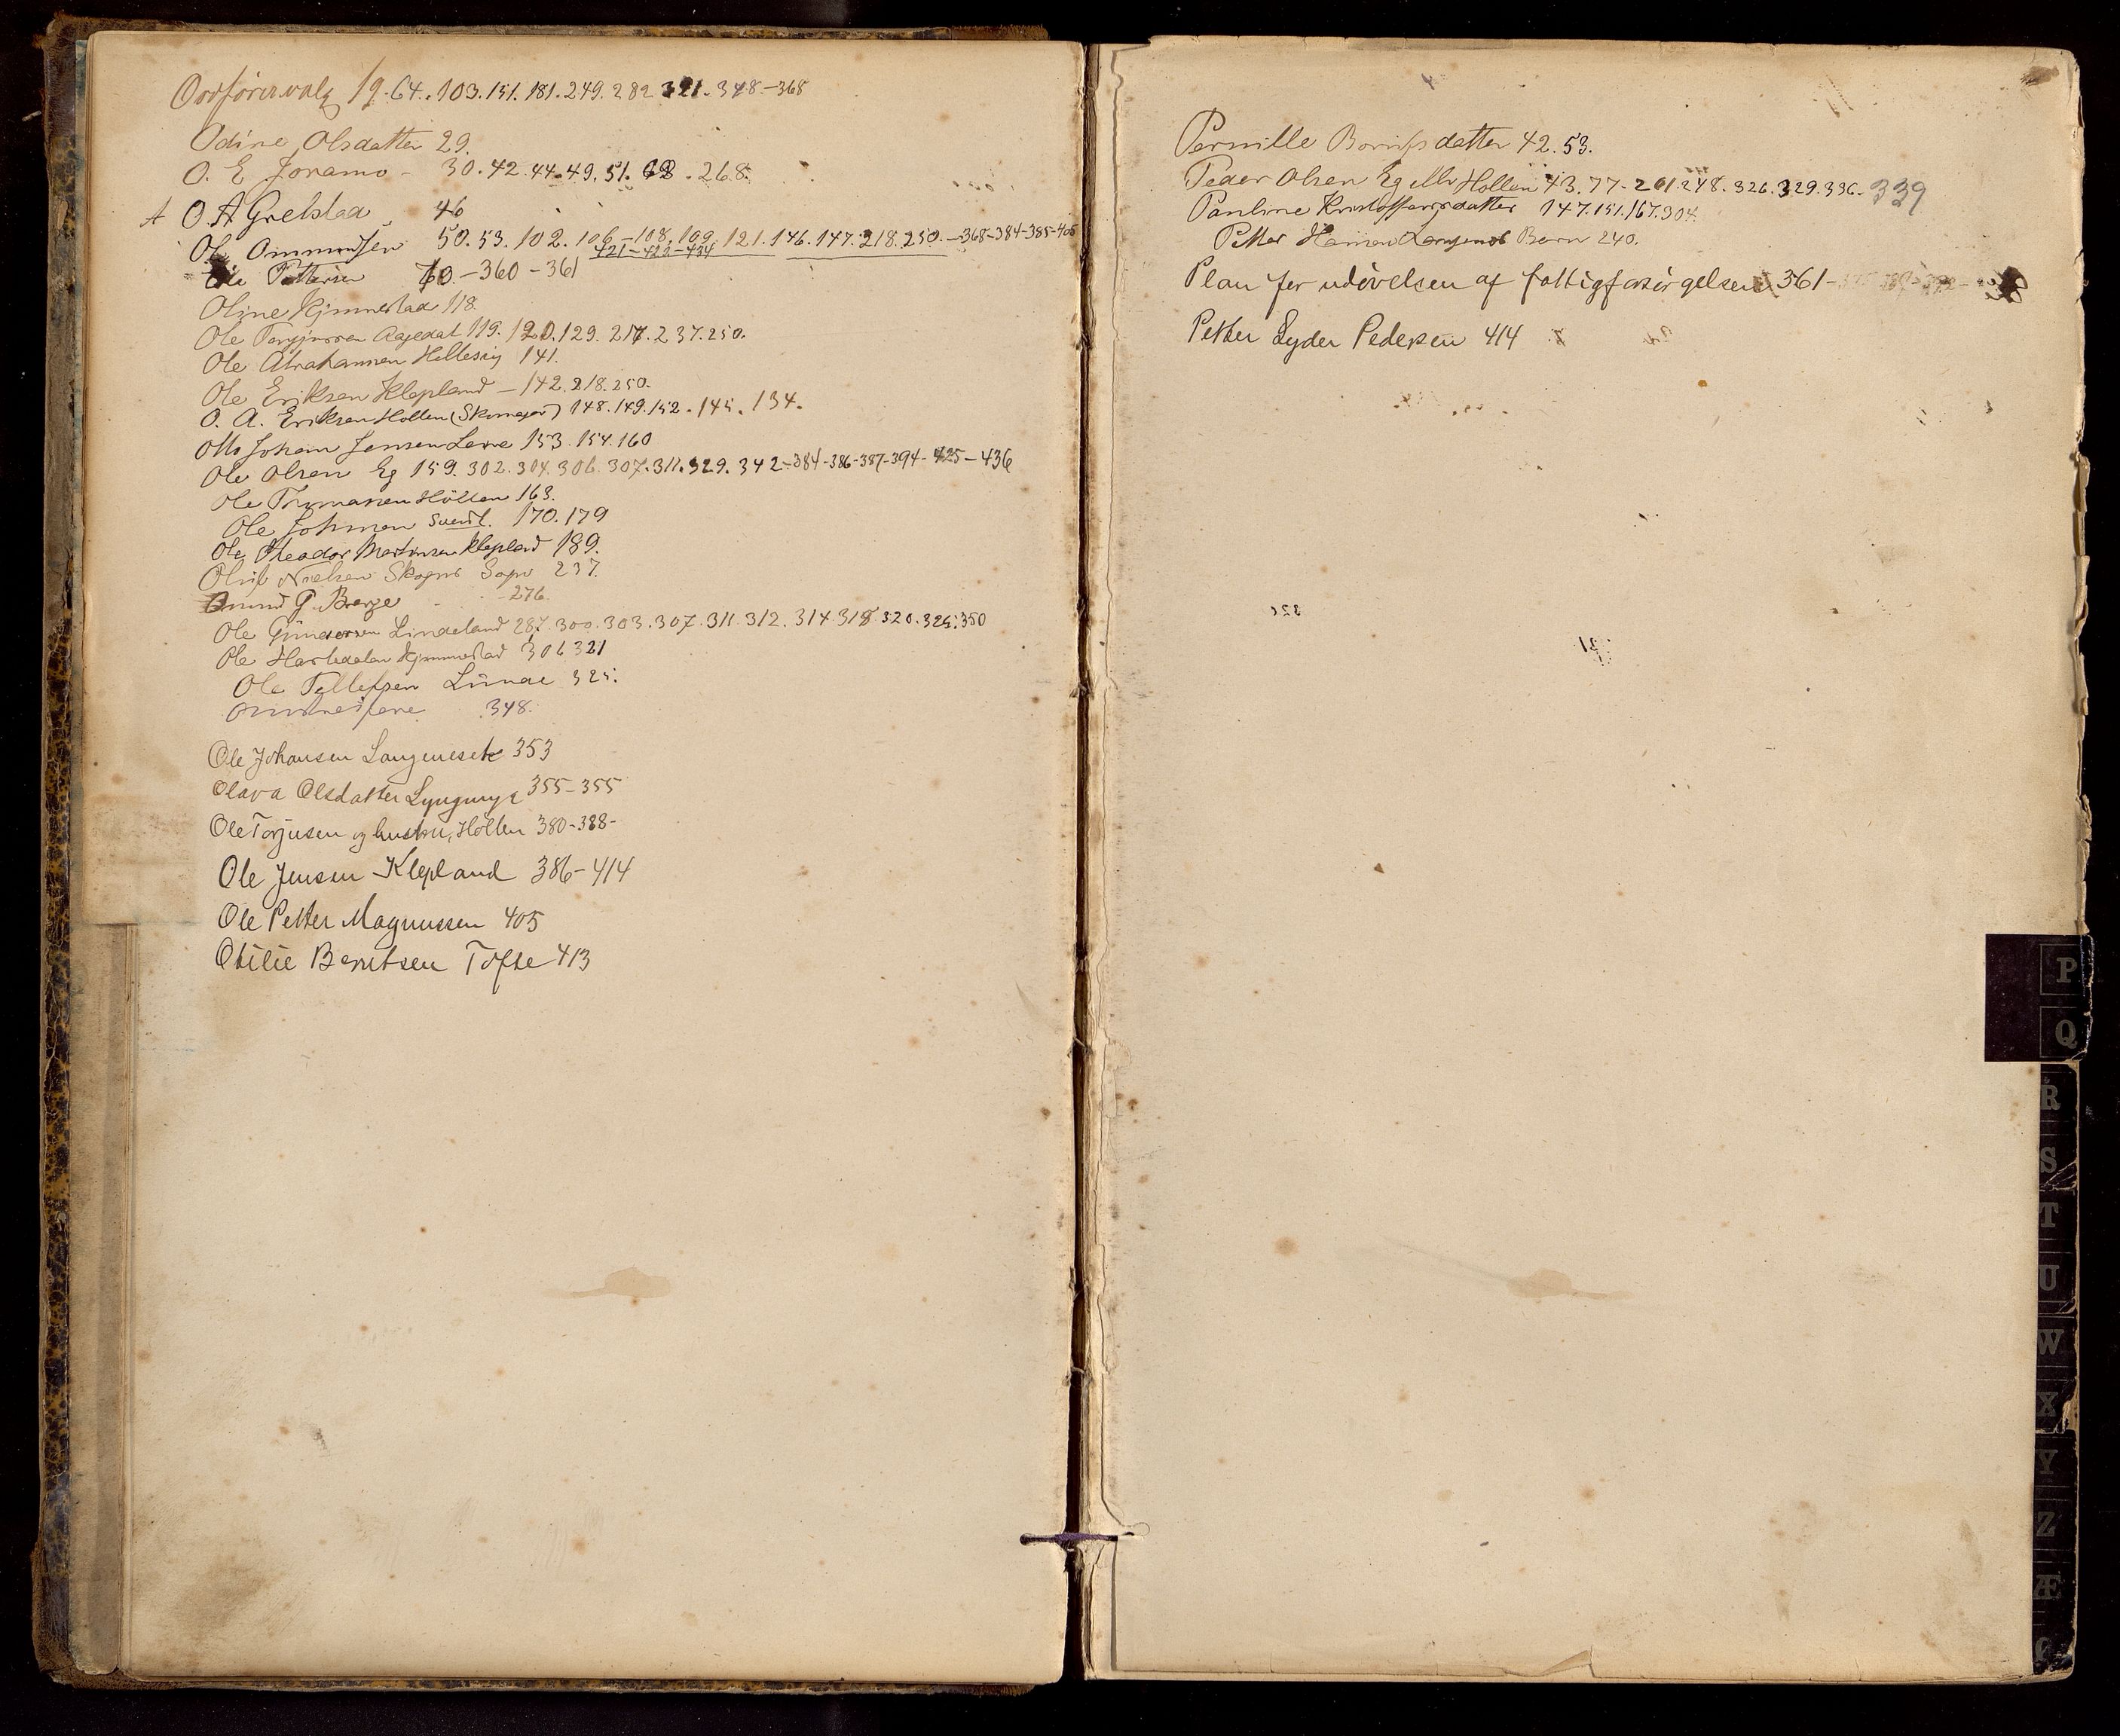 Ordførervalg 19.64.103.151.181.249.282.321.348.-368
Odine Olsdatter 29.
O. E Joramo - 30.42.44.49.51.62.268.
A O. A Grelstad 46
Ole Ommundsen 50.53.102.106-108.109.121.146.147.218.250.-368-384-385-405
421-423-434
Ole Pettersen 60.-360-361
Oline Kjimestad 118.
Ole Tergjussen Aagedal 119.120.129.217.237.250.
Ole Abrahamsen Hellesvig 141.
Ole Eriksen Klepland - 142.218.250.
O. A. Eriksen Hollen (Skomager) 148.149.152.145.134.
Otto Johan Jensen 153.154.160
Ole Olsen Eg 159.302.304.306.307.311.329.342-384-386-387-394-425-436
Ole Thomassen Hollen 163.
Ole Johnsen 170.179
Ole Theodor Martinsen Klepland 189.
Oluf Nielsen Skogns 237.
G. Berge 276.
Ole Gundersen Lindeland 287.300.303.307.311.312.314.318.320.325.350
Ole Kjimmestad 306 321
Ole Tellefsen Lunde 325.
348.
Ole Johansen Langenesetr 353
Olava Olsdatter Lyngmyr 355-355
Ole Torjusen og hustru, Höllen 380-388-
Ole Jensen Klepland 386-414
Ole Petter Magnussen 405
Otilie Berntsen Tofte 413
Pernille datter 42.53.
Peder Olsen Eg Hollen 43.77-201.248.326.329.336-339
Pauline Kristoffersdatter 147.151.167.304.
Petter Hansen Langenes Barn 240.
Plan for udövelsen af fattigforsörgelsen 361-
Petter Lyder Pedersen 414
P
Q
R
S
T
U
W
X
Y
Z
Æ